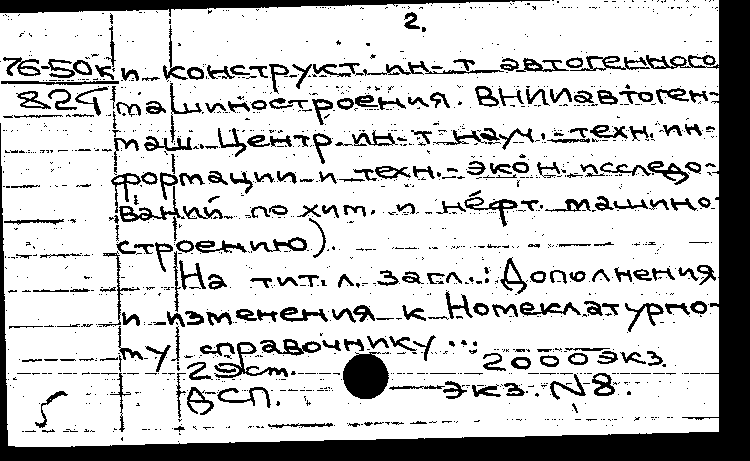 2.
76-50к
824
и конструкт. ин-т автогенного
машиностроения. ВНИИавтоген-
маш. Центр. ин-т науч.-техн. ин-
формации и техн.-экон. исследо-
ваний по хим. и нефт. машино-
строению).
На тит. л. загл.: Дополнения
и изменения к Номеклатурно-
му справочнику...
29ст. 2000экз.
ДСП. экз. N8.